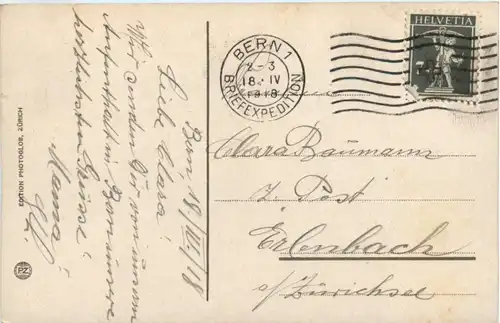 Bern, 18./IV./18
Liebe Clara!
Wir senden Dir von unserm
Aufenthalt in Bern unsere
herzlichsten Grüsse!
Mama
EDITION PHOTOGLOB, ZÜRICH
PZ
BERN 1
2-3
18.IV
1918
BRIEFEXPEDITION
HELVETIA
Clara Baumann
z. Post
Erlenbach
a/Zürichsee